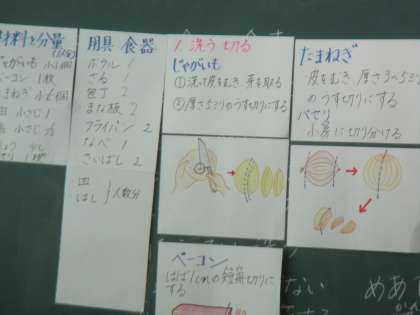 材料と分量
じゃがいも 小1個
ベーコン 1枚
たまねぎ 小
油 小さじ1
塩 小さじ
こしょう 少し
用具 食器
ボウル 1
ざる 1
包丁 2
まな板 2
フライパン 2
なべ 1
さいばし 2
皿
はし
人数分
1. 洗う 切る
じゃがいも
①洗って皮をむき、芽を取る
②厚さ5ミリのうす切りにする
たまねぎ
皮をむき、厚さ3〜5ミリ
のうす切りにする
パセリ
小房に切り分ける
ベーコン
はば1cmの短冊切りに
する
ない
めあ
する